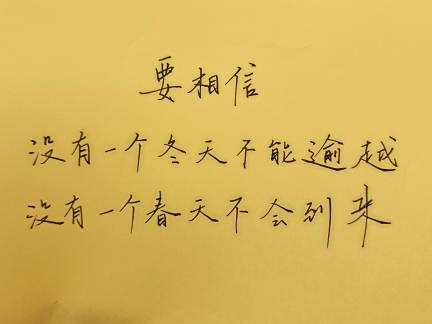 要相信
没有一个冬天不能逾越
没有一个春天不会到来